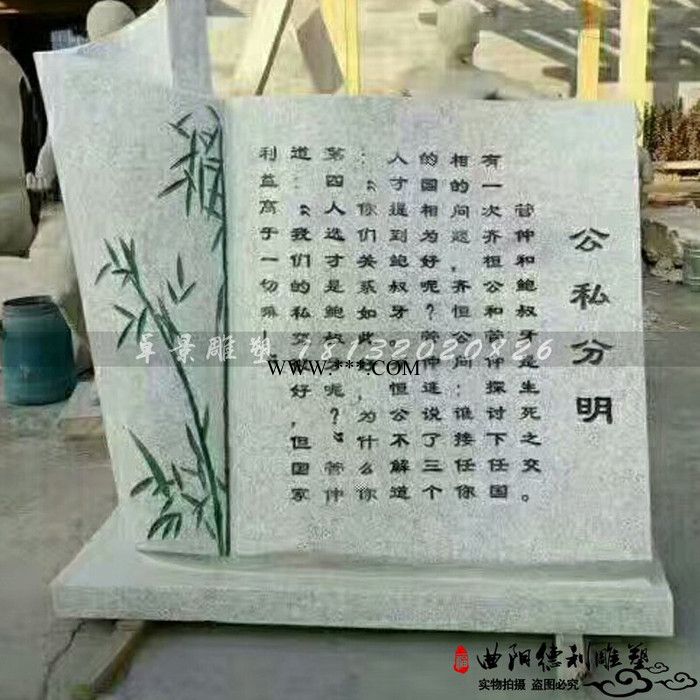 公私分明
管仲和鲍叔牙是生死之交。
有一次齐桓公和管仲探讨下任国
相的问题，齐恒公问：谁接任你
的国相为好呢？管仲连说了三个
人才提到鲍叔牙，齐恒公不解道
：“你们关系如此好，为什么你
第四人选才是鲍叔牙呢？”管仲
道：“我们的私交很好，但国家
利益高于一切嘛！”
卓景雕塑 18132020826
www.***.COM
曲阳德利雕塑
实物拍摄 盗图必究